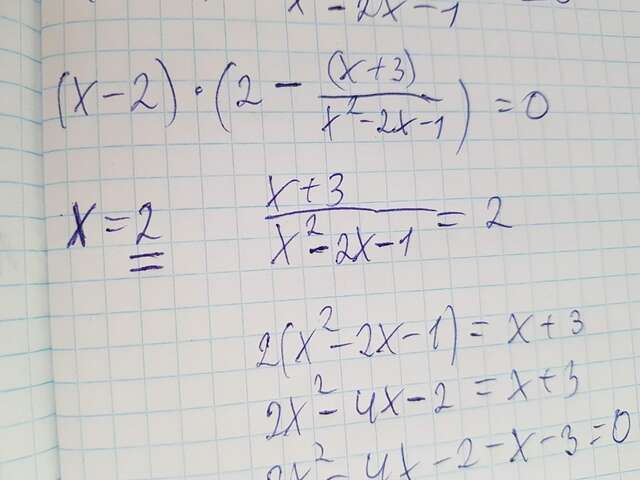 x²-2x-1
(x-2)·(2-(x+3)/(x²-2x-1))=0
x=2  (x+3)/(x²-2x-1)=2
2(x²-2x-1)=x+3
2x²-4x-2=x+3
2x²-4x-2-x-3=0